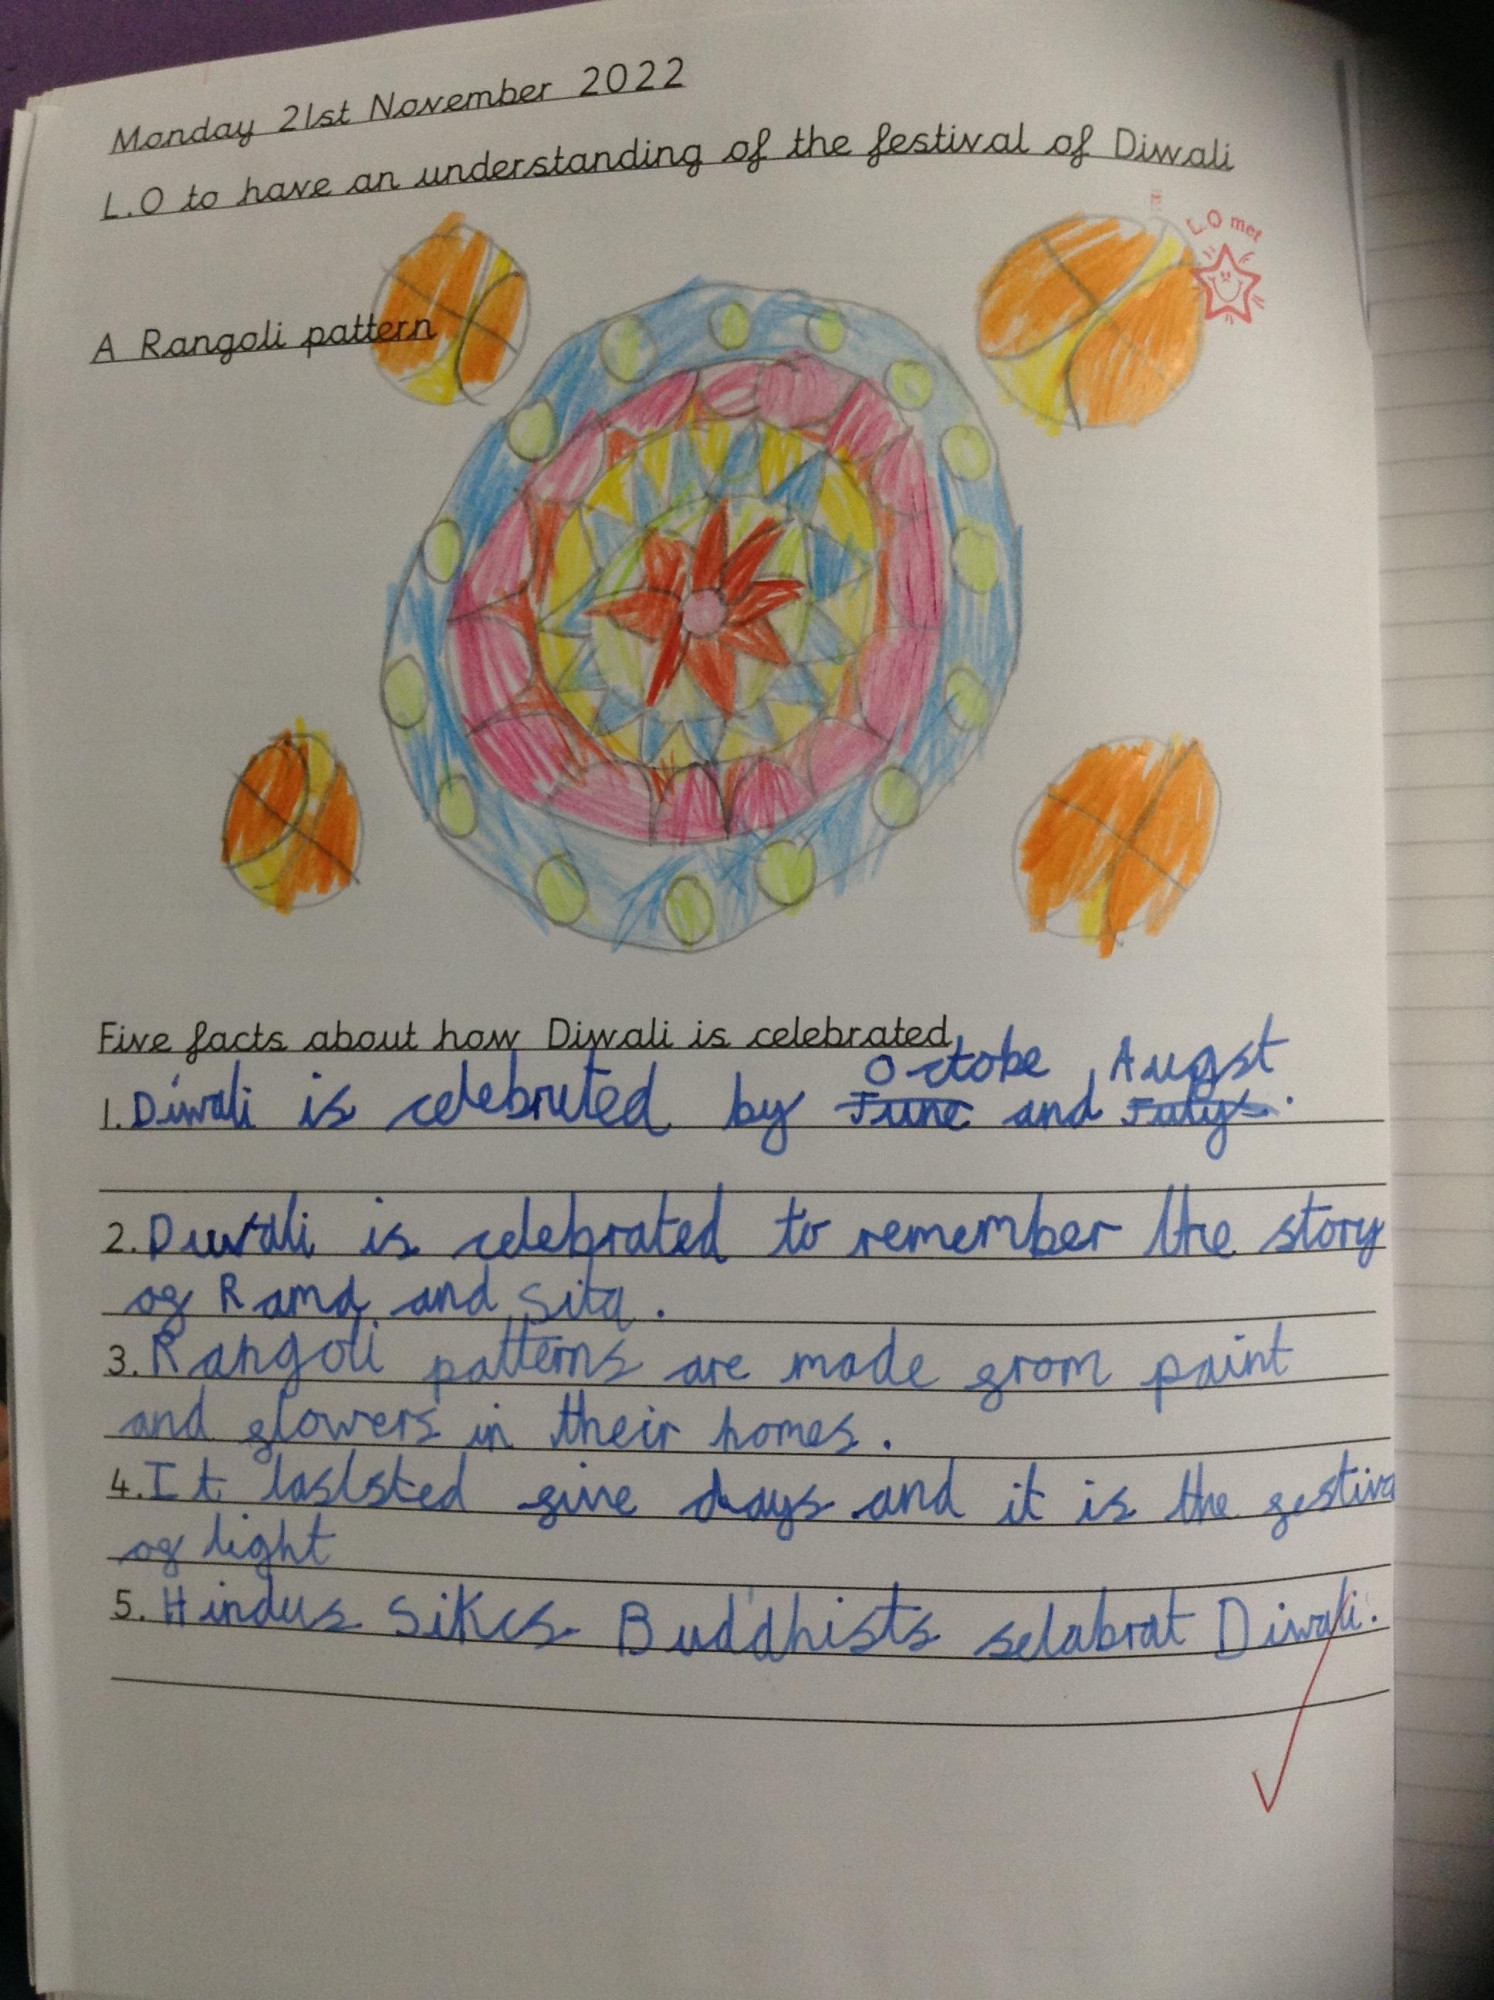 Monday 21st November 2022
L.O to have an understanding of the festival of Diwali
L.O met
A Rangoli pattern
Five facts about how Diwali is celebrated
Octobe Augst
1. Diwali is celebruted by June and Julys.
2. Duwali is celebrated to remember the story
of Rama and Sita.
3. Rangoli patterns are made from paint
and flowers in their homes.
4. It laslsted five days and it is the festiva
of light
5. Hindus Sikes Buddhists selabrat Diwali.